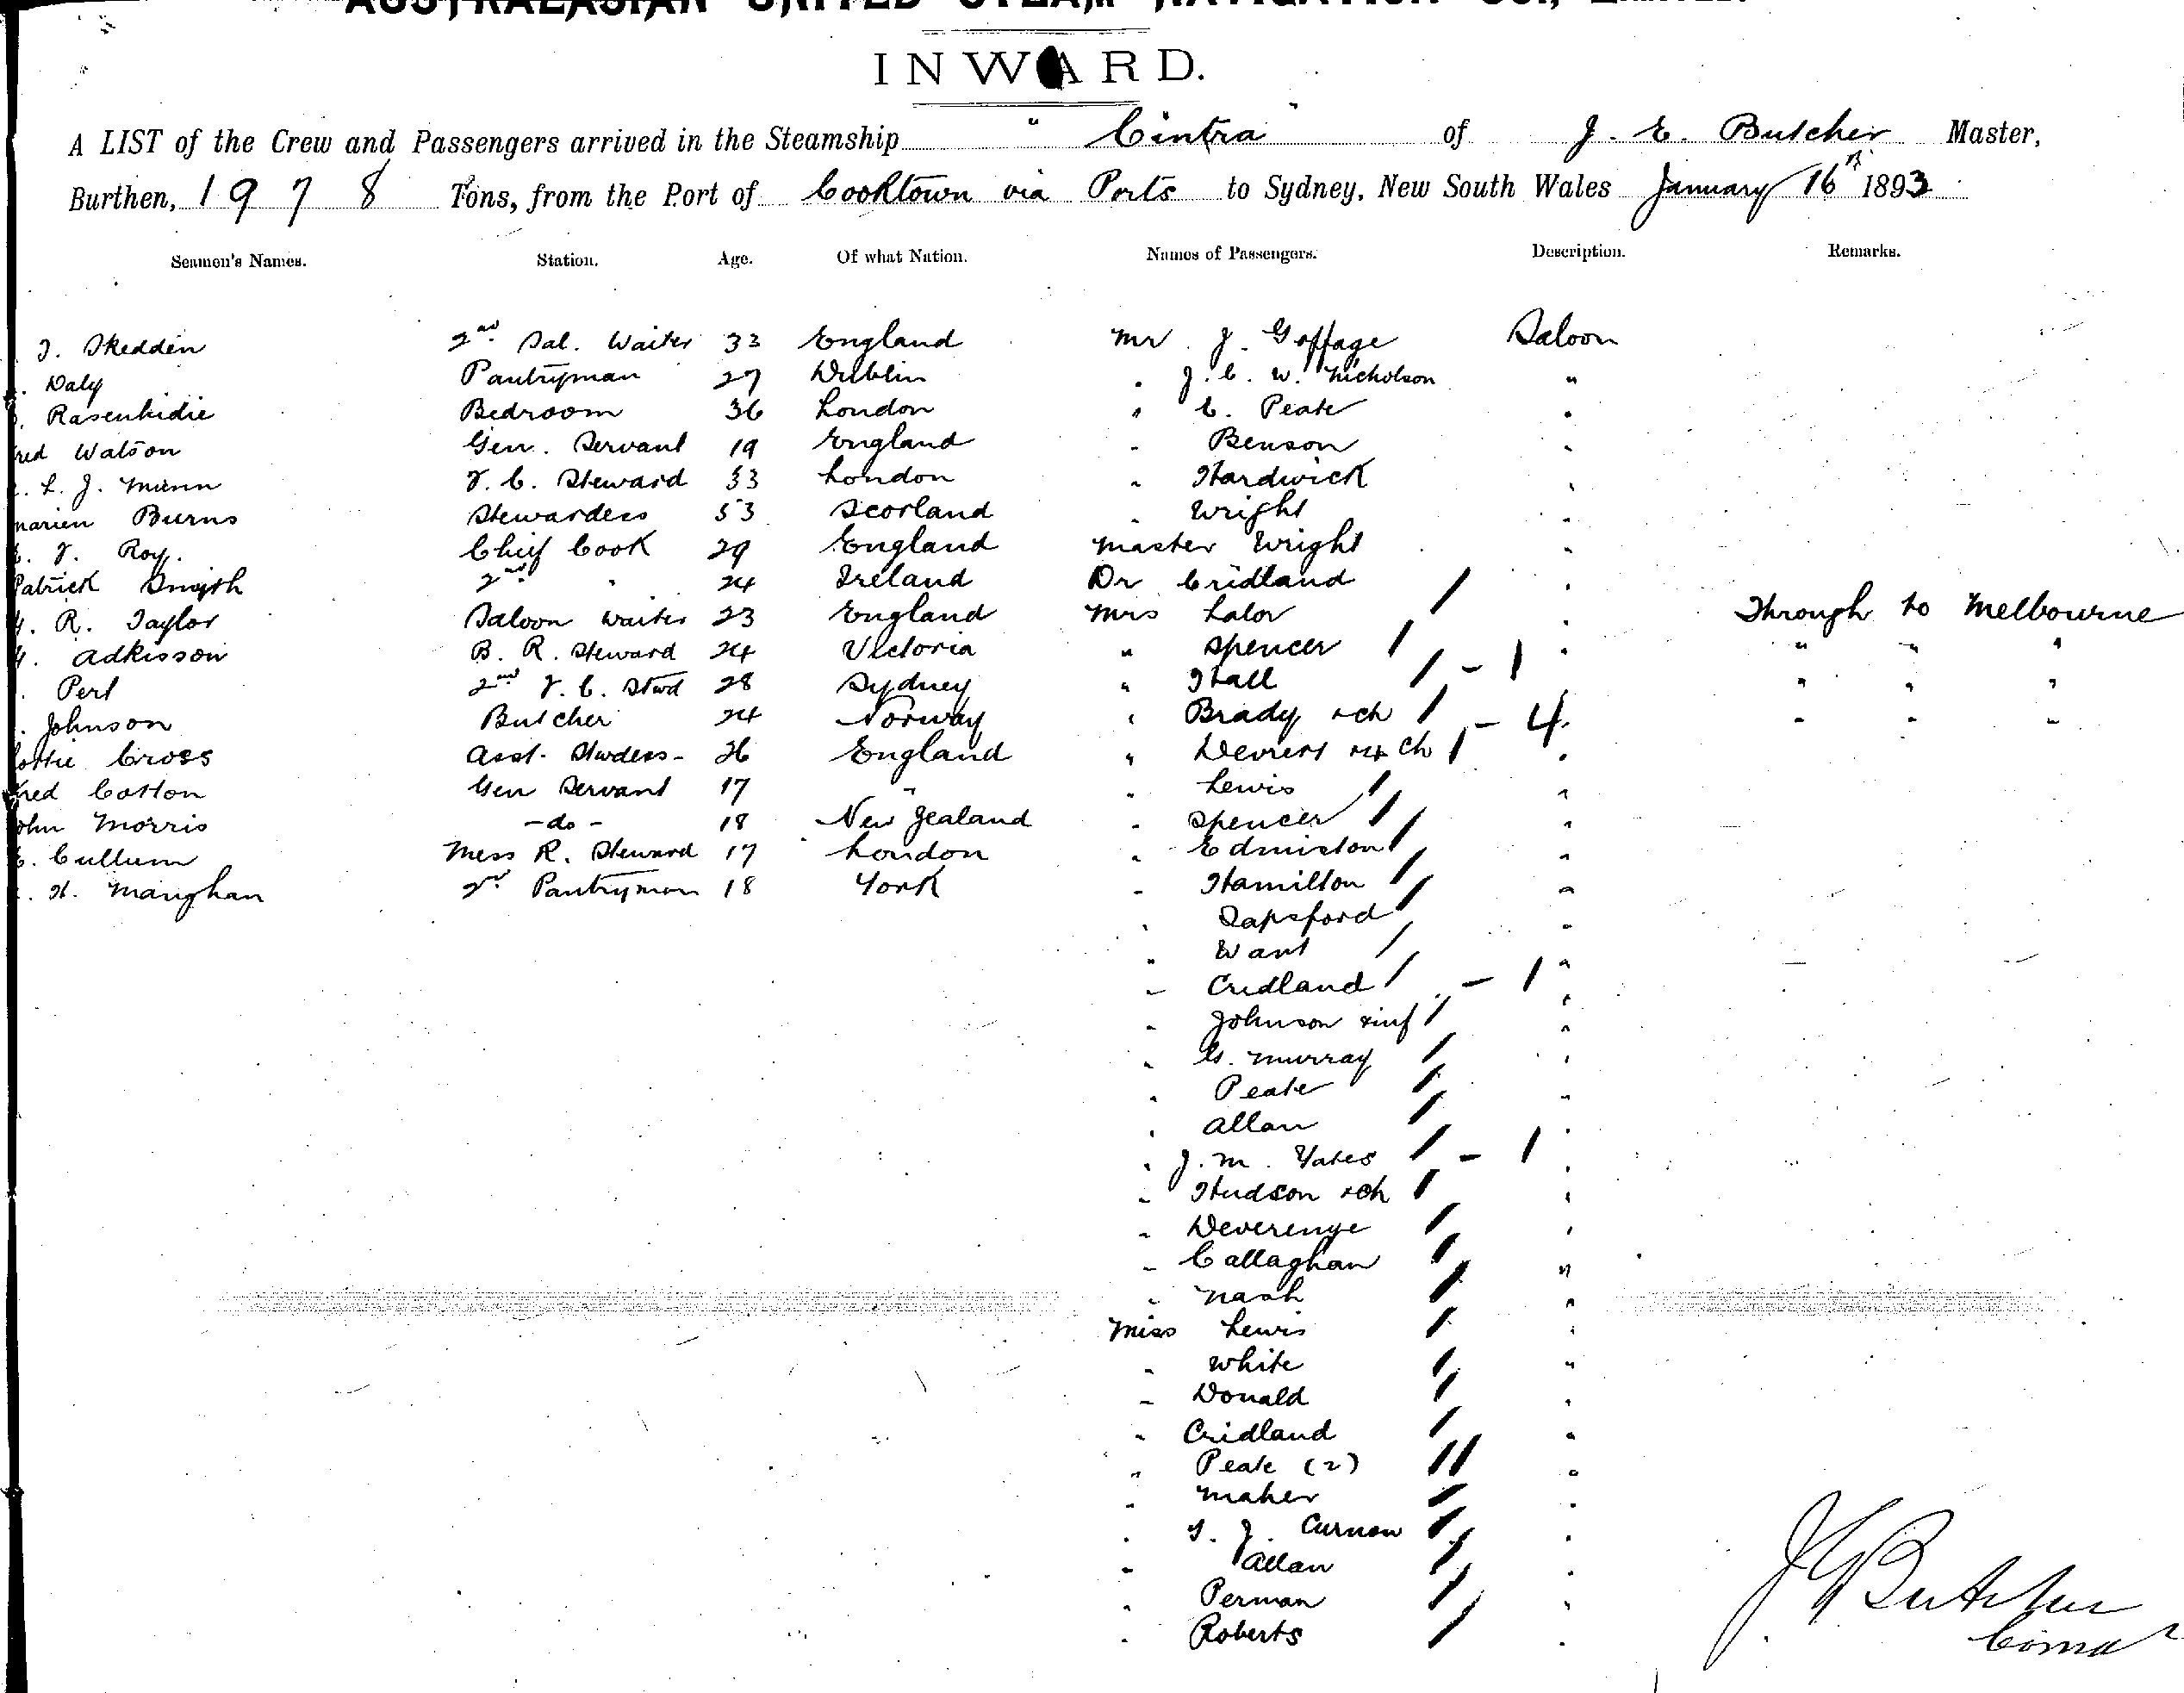 AUSTRALASIAN UNITED STEAM NAVIGATION CO., LIMITED.
INWARD.
A LIST of the Crew and Passengers arrived in the Steamship "Cintra" of J. E. Butcher Master,
Burthen, 1978 Tons, from the Port of Cooktown via Ports to Sydney, New South Wales January 16th 1893
Seamen's Names. Station. Age. Of what Nation. Names of Passengers. Description. Remarks.
J. Skedden 2nd Sal. Waiter 33 England Mr J. Goffage Saloon
Daly Pantryman 27 Dublin " J. C. W. Nicholson "
Rasenhidie Bedroom 36 London " C. Peate "
red Watson Gen. Servant 19 England " Benson "
L. J. Mann F. C. Steward 33 London " Hardwick "
marien Burns Stewardess 53 Scorland " Wright "
F. Roy. Chief Cook 29 England Master Wright "
Patrick Smyth 2nd " 24 Ireland Dr Cridland "
R. Taylor Saloon Waiter 23 England Mrs Lalor / " Through to Melbourne
Adkisson B. R. Steward 24 Victoria " Spencer / " " " "
Perl 2nd F. C. Stwd 28 Sydney " Hall / - 1 " " " "
Johnson Butcher 24 Norway " Brady + ch / - 4 " " " "
ottie Cross Asst. Stwdess - 26 England " + 4 ch / "
red Cotton Gen Servant 17 " " Lewis / "
ohn Morris - do - 18 New Zealand " Spencer / "
Cullum Mess R. Steward 17 London " Edmiston / "
H. Manghan 2nd Pantryman 18 York " Hamilton / "
" Sapsford / "
" Want / "
" Cridland / - 1 "
" Johnson + inf / "
" G. Murray / "
" Peate / "
" Allan / "
" J. M. Yates / - 1 "
" Hudson + ch / "
" Deverenge / "
" Callaghan / "
" Nash / "
Miss Lewis / "
" White / "
" Donald / "
" Cridland / "
" Peate (2) // "
" Maher / "
" J. Curnow / "
" Allan / "
" Perman / "
" Roberts / "
J E Butcher